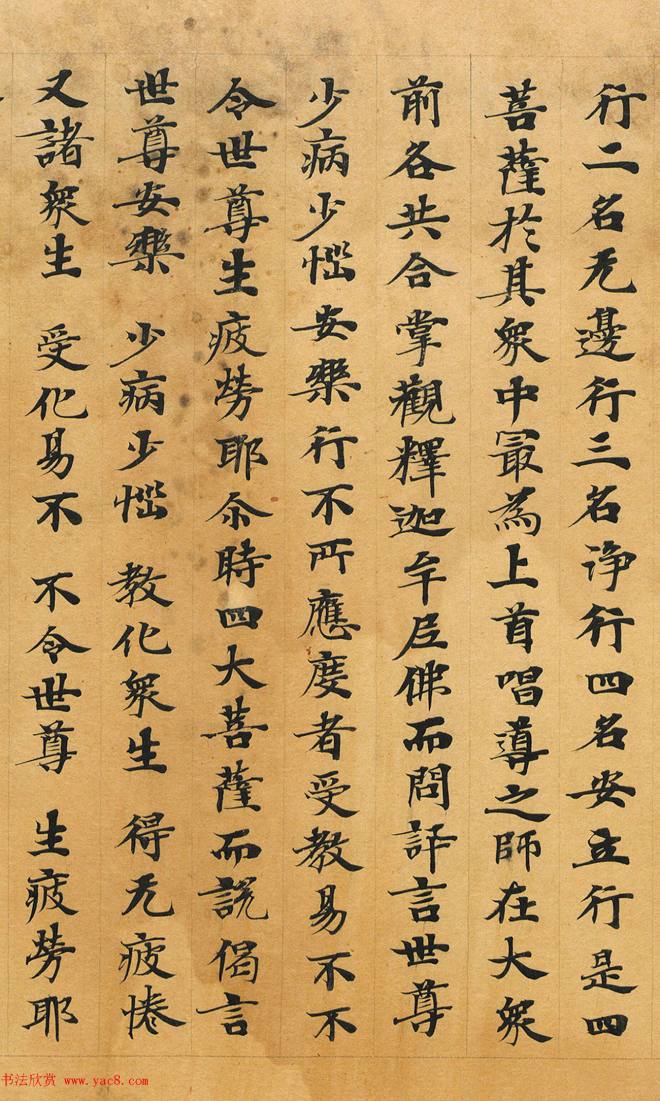 行二名无邊行三名淨行四名安立行是四
菩薩於其衆中冣為上首唱導之師在大衆
前各共合掌觀釋迦牟尼佛而問訊言世尊
少病少惱安樂行不所應度者受教易不不
令世尊生疲勞耶尒時四大菩薩而說偈言
世尊安樂 少病少惱 教化衆生 得无疲惓
又諸衆生 受化易不 不令世尊 生疲勞耶
书法欣赏 www.yac8.com